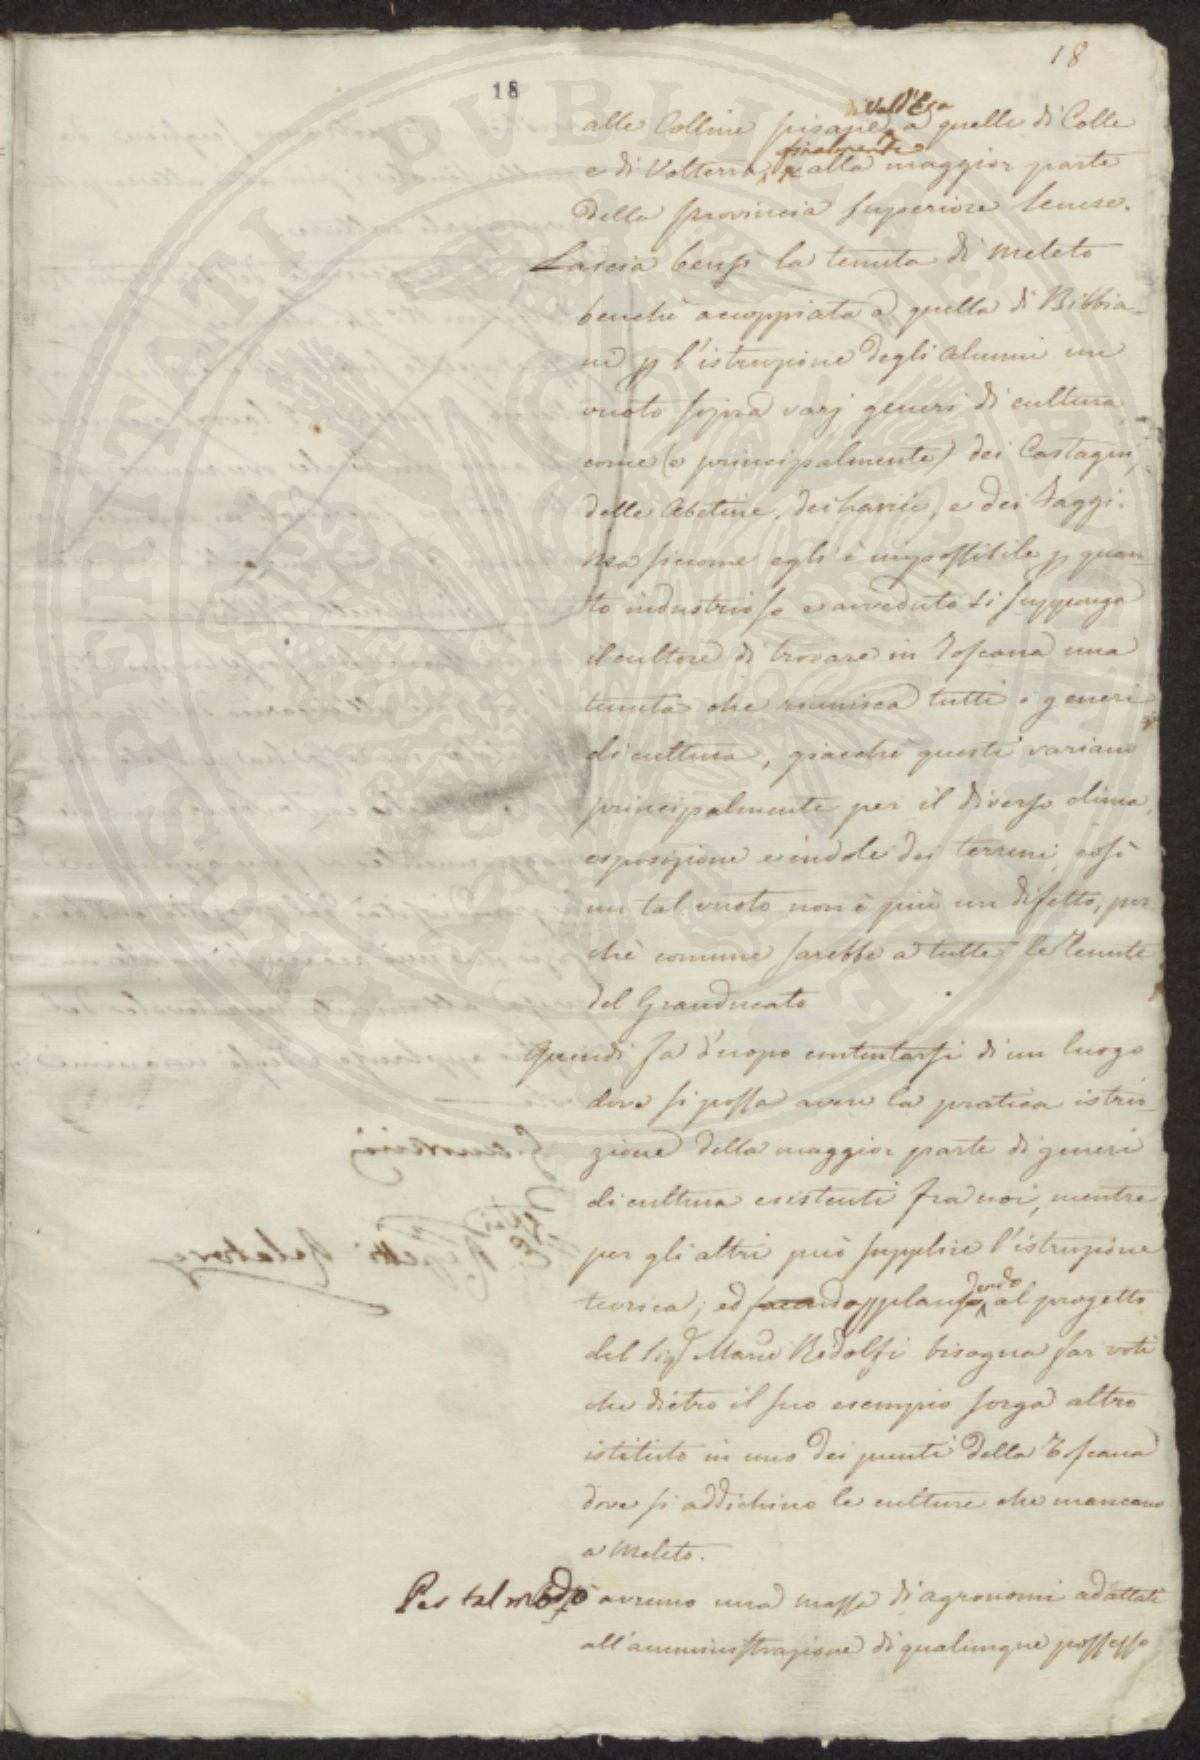 18
18
di Val d'Era
alle Colline pisane, a quelle di Colle
finalmente
e di Volterra, e alla maggior parte
della provincia superiore senese.
Lascia bensì la tenuta di Meleto
benchè accoppiata a quella di Bibbia-
no p l'istruzione degli alunni un
vuoto sopra varj generi di cultura
come (e principalmente) dei Castagni,
delle Abetine, dei Larici, e dei Faggi.
Ma siccome egli è impossibile p quan-
to industrioso e avveduto si supponga
il cultore di trovare in Toscana una
tenuta che riunisca tutti i generi
di cultura, giacchè questi variano
principalmente per il diverso clima,
esposizione e indole dei terreni, così
un tal vuoto non è più un difetto, per-
chè comune sarebbe a tutte le Tenute
del Granducato
Quindi fa d'uopo contentarsi di un luogo
dove si possa avere la pratica istru-
zione della maggior parte di generi
di cultura esistenti fra noi, mentre
per gli altri può supplire l'istruzione
dendo
teorica; ed facendo applauso al progetto
del Sig Marc Ridolfi bisogna far voti
che dietro il suo esempio sorga altro
istituto in uno dei punti della Toscana
dove si addichino le culture che mancano
a Meleto.
Per tal modo avremo una massa di agronomi adattati
all'amministrazione di qualunque possesso